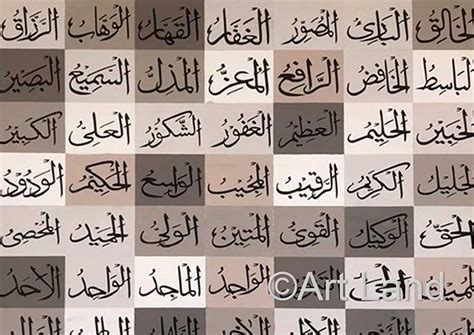 الخالق البارئ المصور الغفار القهار الوهاب الرزاق
الباسط الخافض الرافع المعز المذل السميع البصير
الخبير الحليم العظيم الغفور الشكور العلي الكبير
الجليل الكريم الرقيب المجيب الواسع الحكيم الودود
الحق الوكيل القوي المتين الولي الحميد المحصي
الحي الواجد الماجد الواحد الاحد
©Art Land